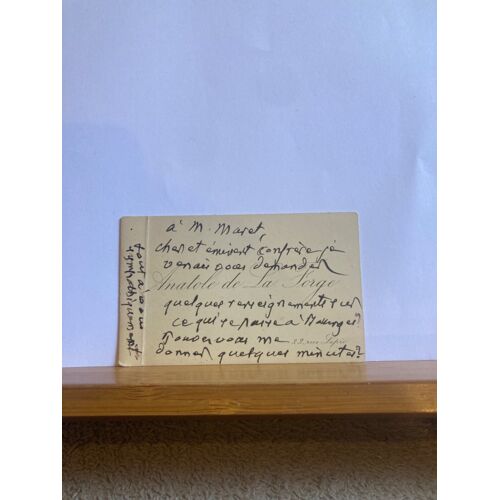 à M. Maret,
cher et éminent confrère je
venais vous demander
Anatole de La Forge
quelques renseignements sur
ce qui se passe à
Pouvez vous me
33, rue
donner quelques minutes?
tout à vous
sympathiquement